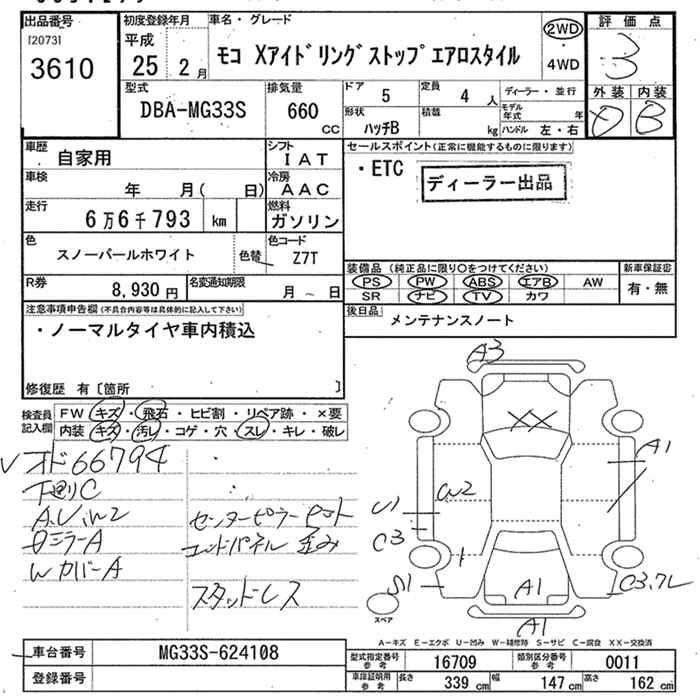 出品番号
[2073]
3610
初度登録年月
平成
25 2月
車名・グレード
モコ Xアイドリングストップ エアロスタイル
2WD
・
4WD
評価点
3
外装 内装
D B
型式
DBA-MG33S
排気量
660
CC
ドア
5
定員
4 人
形状
ハッチB
積載
kg
ディーラー・並行
モデル年式 年
ハンドル 左・右
車歴
自家用
シフト
IAT
車検
年 月( 日)
冷房
AAC
走行
6万6千793 km
燃料
ガソリン
色
スノーパールホワイト
色替
色コード
Z7T
R券
8,930 円
名変通知期限
月 ~ 日
セールスポイント(正常に機能するものに限ります)
・ETC
ディーラー出品
装備品 (純正品に限り〇をつけてください)
PS PW ABS エアB AW
SR ナビ TV カワ
新車保証書
有・無
後日品
メンテナンスノート
注意事項申告欄(不具合内容等は具体的に記入して下さい)
・ノーマルタイヤ車内積込
修復歴 有〔箇所 〕
検査員記入欄
FW キズ・飛石・ヒビ割・リペア跡・×要
内装 キズ・汚レ・コゲ・穴・スレ・キレ・破レ
オド66794
下廻りC
A.U.W2
ミラーA
W カバーA
センターピラー
パネル 歪み
スタッドレス
A3
XX
A1
W2
U1
C3
S1
A1
A1
C3.7L
スペア
A-キズ E-エクボ U-凹み W-補修跡 S-サビ C-腐食 XX-交換済
車台番号
MG33S-624108
登録番号
型式指定番号
参考
16709
類別区分番号
参考
0011
車検証明用
参考
長さ
339 cm
幅
147 cm
高さ
162 cm